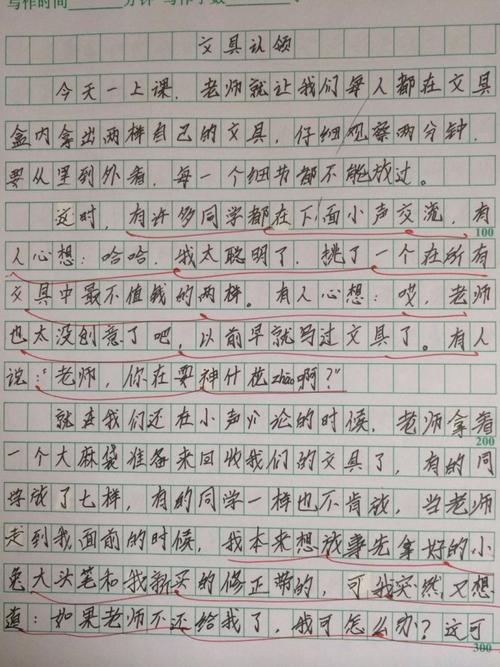 写作时间 分钟 写作字数
文具认领
今天一上课，老师就让我们每人都在文具
盒内拿出两样自己的文具，仔细观察两分钟，
要从里到外看，每一个细节都不能放过。
这时，有许多同学都在下面小声交流，有
100
人心想：哈哈，我太聪明了，挑了一个在所有
文具中最不值钱的两样。有人心想：哎，老师
也太没创意了吧，以前早就写过文具了。有人
说：“老师，你在耍神什花zhāo啊？”
就在我们还在小声讨论的时候，老师拿着
200
一个大麻袋准备来回收我们的文具了，有的同
学放了七样，有的同学一样也不肯放，当老师
走到我面前的时候，我本来想放事先拿好的小
兔大头笔和我新买的修正带的，可我突然又想
道：如果老师不还给我了，我可怎么办？这可
300